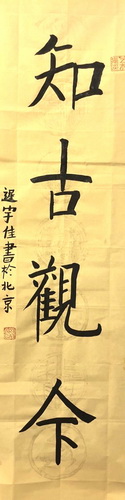 知古觀今
遲宇佳書於北京